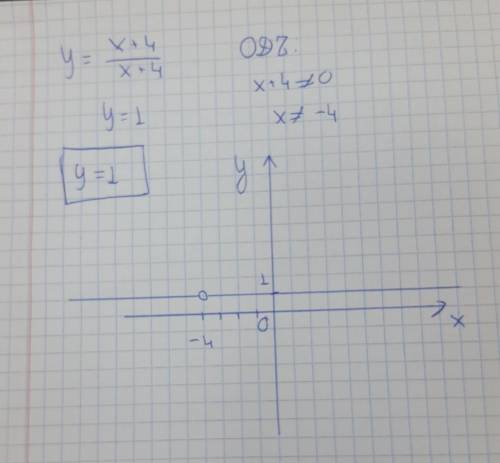 y = \frac{x+4}{x+4}
ОДЗ.
x+4 ≠ 0
y = 1
x ≠ -4
y = 1
y
1
-4
0
x